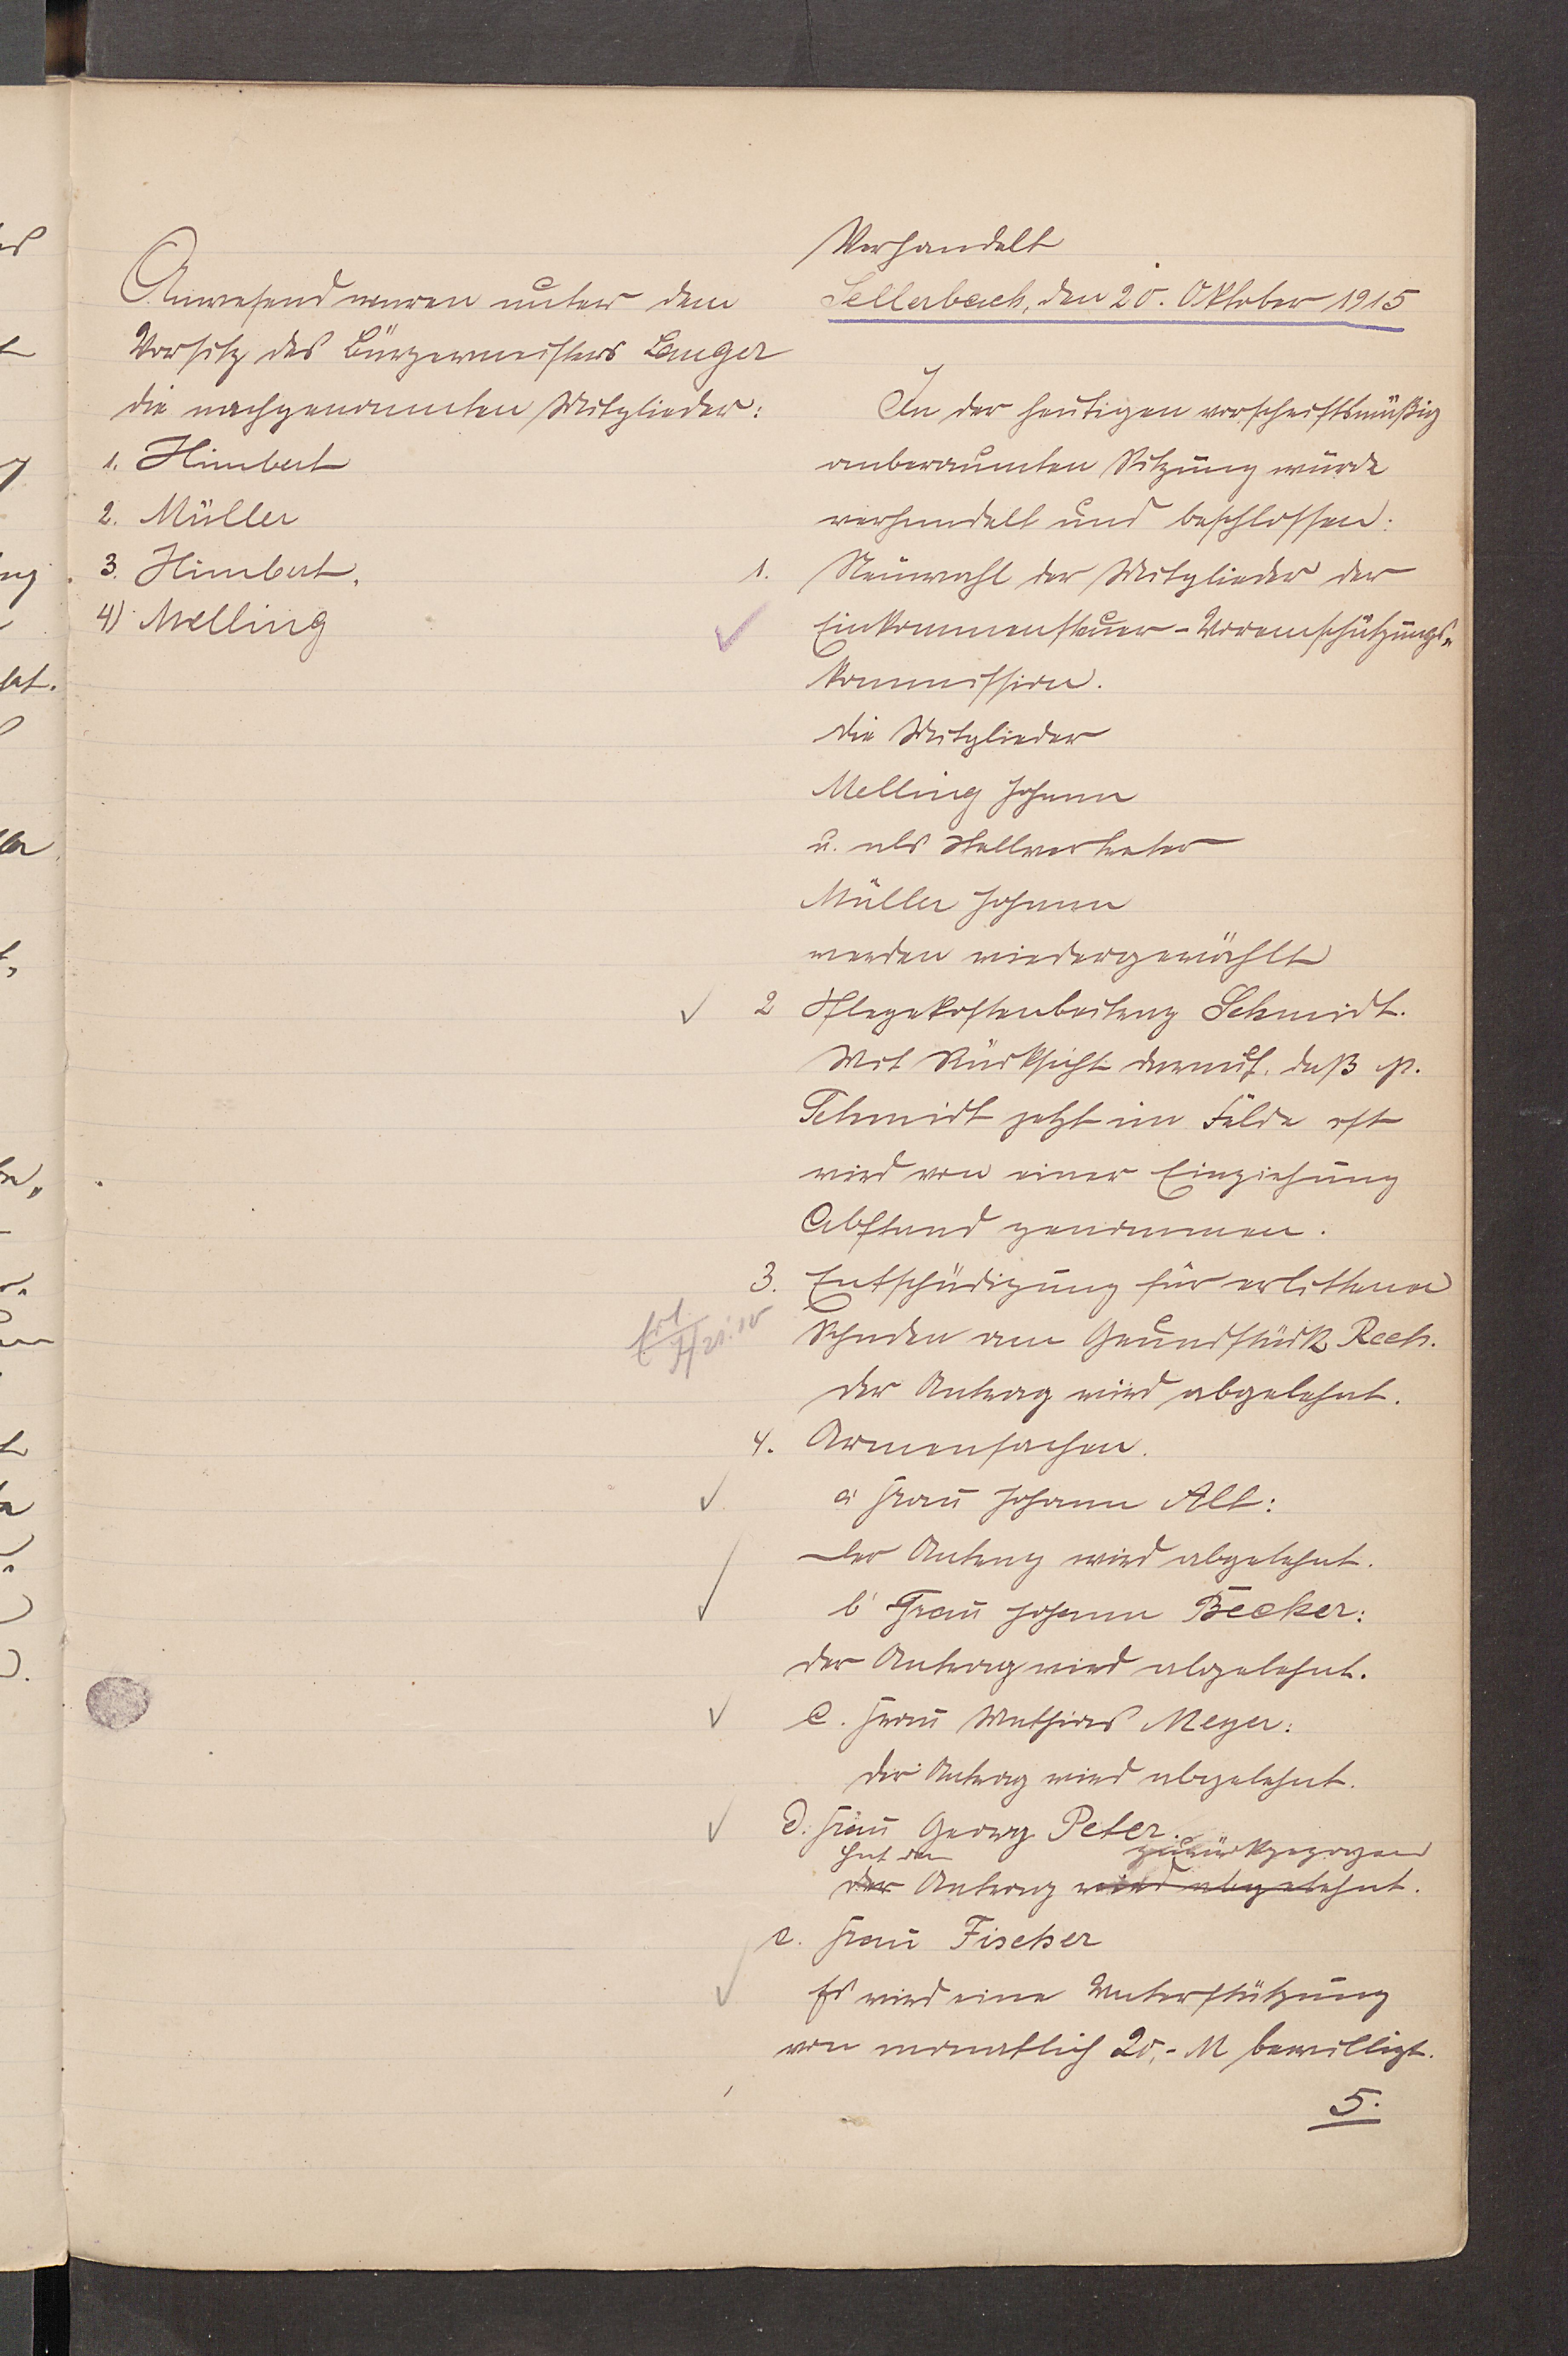 Anwesend waren unter dem
Vorsitz des Bürgermeisters Langer
die nachgenannten Mitglieder:
1. Himbert
2. Müller
3. Himbert.
4) Melling
Verhandelt
Sellerbach, den 20. Oktober 1915
In der heutigen vorschriftsmäßig
anberaumten Sitzung wurde
verhandelt und beschlossen:
1. Neuwahl der Mitglieder der
Einkommensteuer-Voreinschätzungs-
kommission.
die Mitglieder
Melling Johann
u. als Stellvertreter
Müller Johann
werden wiedergewählt
2 Pflegekostenbeitrag Schmidt.
Mit Rücksicht darauf, daß p.
Schmidt jetzt im Felde ist
wird von einer Einziehung
Abstand genommen.
3. Entschädigung für erlittenen
Schaden am Grundstück Rech.
der Antrag wird abgelehnt.
4. Armensachen.
a Frau Johann Alt:
Der Antrag wird abgelehnt.
b Frau Johann Becker:
der Antrag wird abgelehnt.
c. Frau Mathias Meyer:
der Antrag wird abgelehnt.
d. Frau Georg Peter.
hat den zurückgezogen
der Antrag wird abgelehnt.
e. Frau Fischer
Es wird eine Unterstützung
von monatlich 20,- M bewilligt.
5.